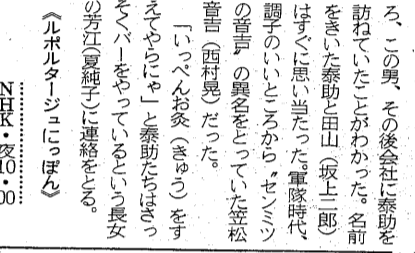 ろ、この男、その後会社に泰助を
訪ねていたことがわかった。名前
をきいた泰助と田山（坂上二郎）
はすぐに思い当たった。軍隊時代、
調子のいいところから〝センミツ
の音戸〟の異名をとっていた笠松
音吉（西村晃）だった。
「いっぺんお灸（きゅう）をす
えてやらにゃ」と泰助たちはさっ
そくバーをやっているという長女
の芳江（夏純子）に連絡をとる。
《ルポルタージュにっぽん》
NHK・夜10・00